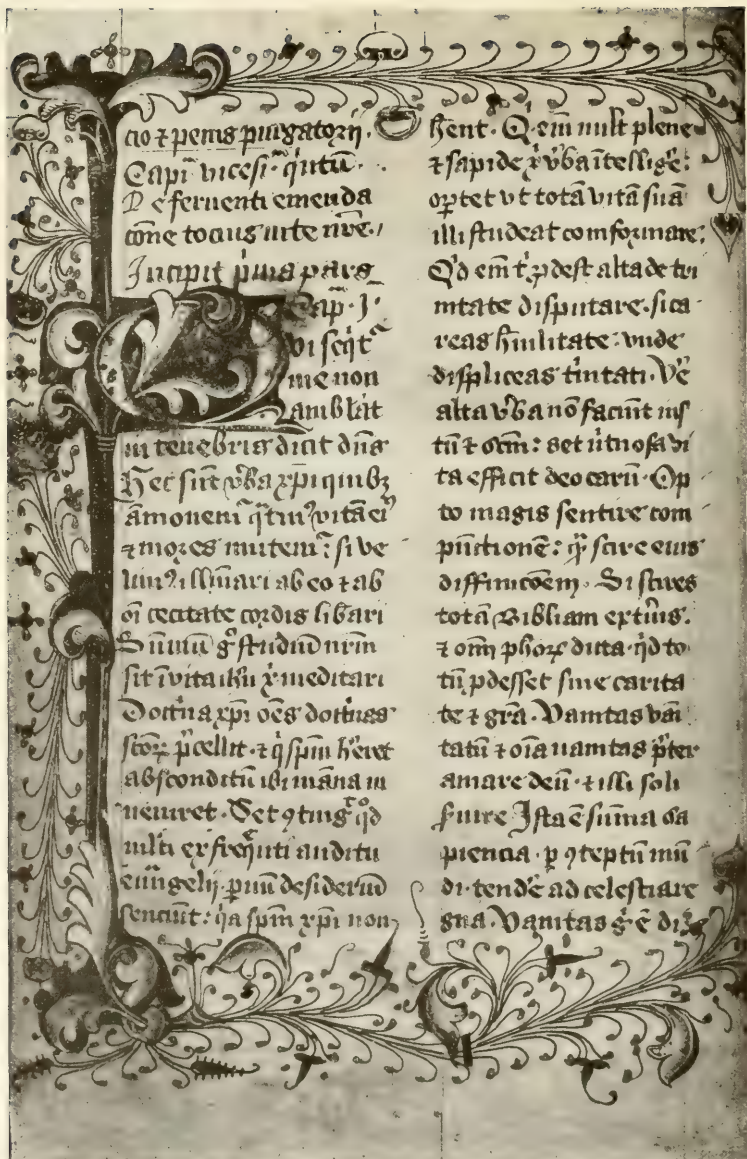 cio ⁊ penis purgatorij.
Capm̄ vicesi. qͥntū.
De feruenti emenda
cōne tocius uite nr̄e.
Incipit p̄ma pars
Cap. I.
Qvi seqͥt᷑
me non
ambl̄at
in tenebris dicit dn̄s
Hec sūt v̄ba xp̄i quibꝫ
amonem᷑ qͣtin᷒ vitā ei᷒
⁊ mores imitem᷑: si ve
lim᷒ illūīari ab eo ⁊ ab
oī cecitate cordis lib̄ari
Sūmū gͦ studiū nrm̄
sit ī vita ih̄u x̄ meditari
Doctͥna xp̄i oēs doctͥnas
sc̄oꝝ p̄cellit. ⁊ qͥ spm̄ h̄eret
absconditū ibi māna in
ueniret. Set ꝯting᷑ qͦd
ml̄ti ex freqͣnti auditu
ew̄ngelij. paruū desideriū
senciūt: qͥa spm̄ xp̄i non
hēnt. Qͥ em̄ uult plene
⁊ sapide x̄ v̄ba ītellige᷑:
oꝑtet vt totā vitā suā
illi studeat comformare:
Qͥd em̄ tͥ ꝓdest alta de tri
nitate disputare. si ca
reas hūilitate: vnde
displiceas tͥnitati. Ve᷑
alta v̄ba nō faciūt ius
tū ⁊ sc̄m: set uͥtuosa vi
ta efficit deo carū. Op
to magis sentire com
pūctionē: qͣ scire eius
diffinicōem. Si scires
totā Bibliam exteri᷒.
⁊ om̄ ph̄oꝝ dicta. qͥd to
tū ꝓdesset sine carita
te ⁊ gr̄a. Vanitas vāi
tatū ⁊ oīa uanitas p̄ter
amare deū. ⁊ illi soli
ẜuire Ista ē sūma sa
piencia. ꝑ ꝯteptū mū
di. tendē ad celestia re
gna. Vanitas gͥ ē